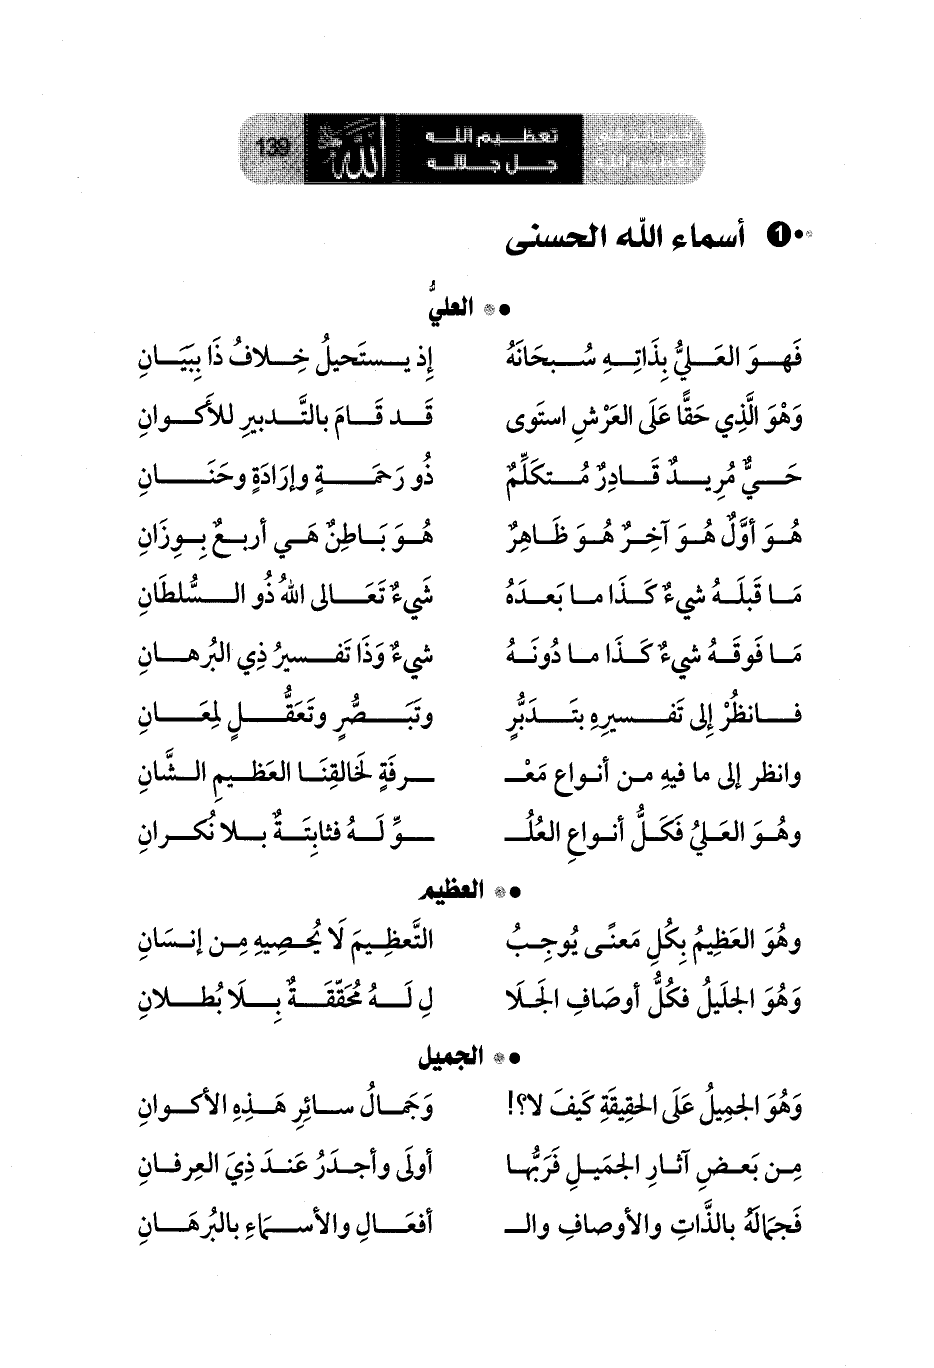 139
الله
تعظيم الله
جل جلاله
1 أسماء الله الحسنى
العليُّ
فَهوَ العَليُّ بِذَاتِهِ سُبحَانَهُ إِذ يستَحيلُ خِلافُ ذَا بِبَيَانِ
وَهْوَ الَّذِي حَقًّا عَلَى العَرْشِ استَوى قَد قَامَ بالتَّدبيرِ للأَكوانِ
حَيٌّ مُرِيدٌ قَادِرٌ مُتكَلِّمٌ ذُو رَحمَةٍ وإرَادَةٍ وحَنَانِ
هُوَ أوَّلٌ هُوَ آخِرٌ هُوَ ظَاهِرٌ هُوَ بَاطِنٌ هَي أربعٌ بِوِزَانِ
مَا قَبلَهُ شيءٌ كَذَا ما بَعدَهُ شَيءٌ تَعَالى اللهُ ذُو السُّلطَانِ
مَا فَوقَهُ شيءٌ كَذَا ما دُونَهُ شيءٌ وَذَا تَفسيرُ ذِي البُرهانِ
فانظُرْ إِلى تَفسيرِهِ بتَدَبُّرٍ وتبَصُّرٍ وتَعَقُّلٍ لِمعَانِ
وانظر إلى ما فيهِ من أنواعِ مَعْـ ـرفَةٍ لخَالقِنَا العَظيمِ الشَّانِ
وهُوَ العَليُ فَكَلُّ أنواعِ العُلُـ ـوِّ لَهُ فثابتَةٌ بلا نُكرانِ
العظيم
وهُوَ العَظِيمُ بِكُلِ مَعنًى يُوجِبُ التَّعظِيمَ لَا يُحصِيهِ مِن إنسَانِ
وَهُوَ الجلَيلُ فكُلُّ أوصَافِ الجَلَا لِ لَهُ مُحَقّقَةٌ بِلَا بُطلانِ
الجميل
وَهُوَ الجميلُ عَلَى الحَقِيقَةِ كَيفَ لا؟! وَجَمالُ سائِرِ هَذِهِ الأكوانِ
مِن بَعضِ آثارِ الجمَيلِ فَرَبُّها أولَى وأجدَرُ عَندَ ذِيَ العِرفانِ
فَجمالَهُ بالذَّاتِ والأوصافِ والـ أفعَالِ والأسماءِ بالبُرهَانِ